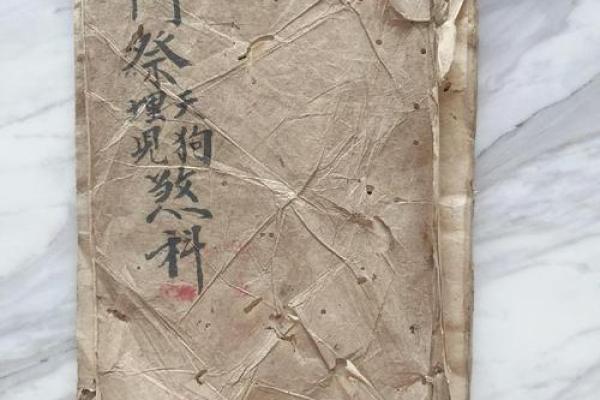 祭
天狗
埋児
煞科